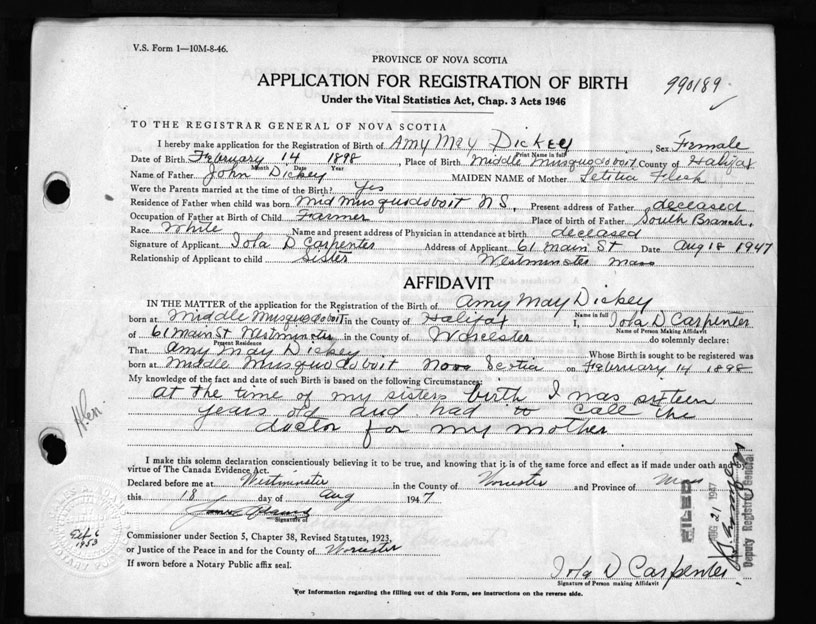 V.S. Form 1—10M-8-46.
PROVINCE OF NOVA SCOTIA
APPLICATION FOR REGISTRATION OF BIRTH
990189
Under the Vital Statistics Act, Chap. 3 Acts 1946
TO THE REGISTRAR GENERAL OF NOVA SCOTIA
I hereby make application for the Registration of Birth of Amy May Dickey, Sex Female
Print Name in full
Date of Birth February 14 1898, Place of Birth Middle Musquodoboit County of Halifax
Month Date Year
Name of Father John Dickey MAIDEN NAME of Mother Letitia
Were the Parents married at the time of the Birth? Yes
Residence of Father when child was born Mid Musquodoboit N.S. Present address of Father deceased
Occupation of Father at Birth of Child Farmer Place of birth of Father South Branch.
Race White Name and present address of Physician in attendance at birth deceased
Signature of Applicant Iola D Carpenter Address of Applicant 61 Main St Date Aug 18 1947
Relationship of Applicant to child Sister Westminster Mass
AFFIDAVIT
IN THE MATTER of the application for the Registration of the Birth of Amy May Dickey
Name in full
born at Middle Musquodoboit in the County of Halifax I, Iola D Carpenter
Name of Person Making Affidavit
of 61 Main St Westminster in the County of Worcester do solemnly declare:
Present Residence
That Amy May Dickey Whose Birth is sought to be registered was
born at Middle Musquodoboit Nova Scotia on February 14 1898
My knowledge of the fact and date of such Birth is based on the following Circumstances:
at the time of my sisters birth I was sixteen
years old and had to call the
doctor for my mother
I make this solemn declaration conscientiously believing it to be true, and knowing that it is of the same force and effect as if made under oath and by
virtue of The Canada Evidence Act.
Declared before me at Westminster in the County of Worcester and Province of Mass
this 18 day of Aug 1947
Signature of
Commissioner under Section 5, Chapter 38, Revised Statutes, 1923,
or Justice of the Peace in and for the County of Worcester
If sworn before a Notary Public affix seal.
1953
FILED
AUG 21 1947
Deputy Registrar General
Iola D Carpenter
Signature of Person making Affidavit
For Information regarding the filling out of this Form, see instructions on the reverse side.